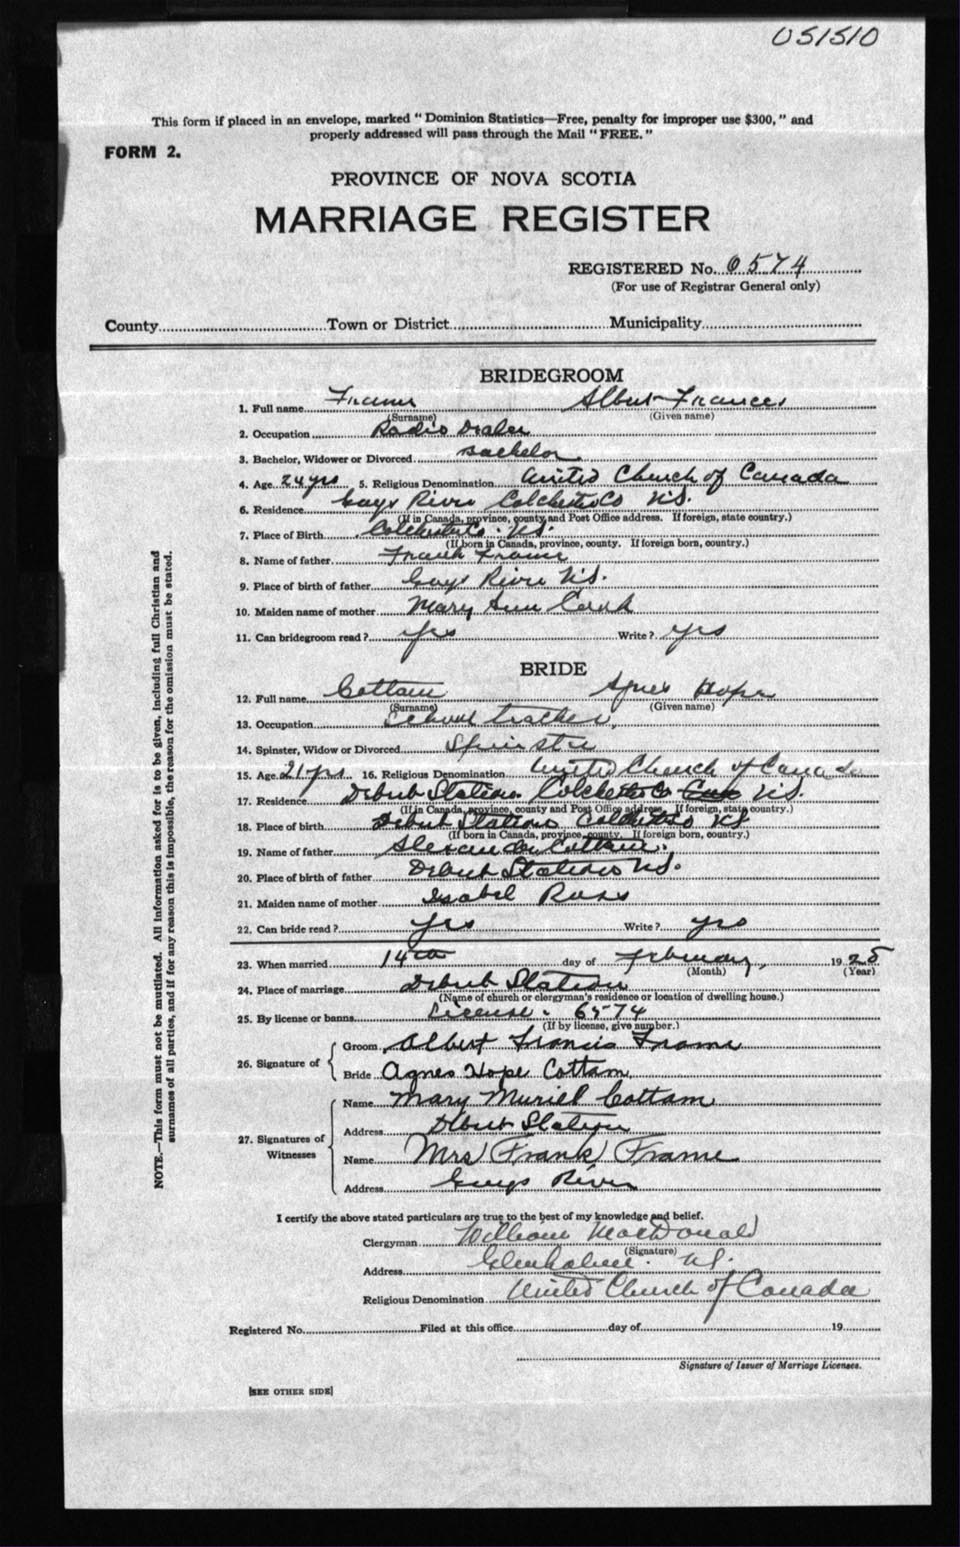 051510
This form if placed in an envelope, marked "Dominion Statistics—Free, penalty for improper use $300," and
properly addressed will pass through the Mail "FREE."
FORM 2.
PROVINCE OF NOVA SCOTIA
MARRIAGE REGISTER
REGISTERED No. 0574
(For use of Registrar General only)
County Town or District Municipality
BRIDEGROOM
1. Full name Frame Albert Frances
(Surname) (Given name)
2. Occupation Radio Dealer
3. Bachelor, Widower or Divorced Bachelor
4. Age 24 yrs 5. Religious Denomination United Church of Canada
6. Residence Gays River Colchester Co N.S.
(If in Canada, province, county and Post Office address. If foreign, state country.)
7. Place of Birth Colchester Co. N.S.
(If born in Canada, province, county. If foreign born, country.)
8. Name of father Frank Frame
9. Place of birth of father Gays River N.S.
10. Maiden name of mother Mary Ann Cook
11. Can bridegroom read? yes Write? yes
BRIDE
12. Full name Cottam Agnes Hope
(Surname) (Given name)
13. Occupation School teacher,
14. Spinster, Widow or Divorced Spinster
15. Age 21 yrs. 16. Religious Denomination United Church of Canada
17. Residence Debert Station Colchester Co N.S.
(If in Canada, province, county and Post Office address. If foreign, state country.)
18. Place of birth Debert Station Colchester NS
(If born in Canada, province, county. If foreign born, country.)
19. Name of father Alexander Cottam.
20. Place of birth of father Debert Station N.S.
21. Maiden name of mother Isabel Ross
22. Can bride read? yes Write? yes
23. When married 14th day of February, 1925
(Month) (Year)
24. Place of marriage Debert Station
(Name of church or clergyman's residence or location of dwelling house.)
25. By license or banns License. 6574
(If by license, give number.)
26. Signature of
Groom Albert Francis Frame
Bride Agnes Hope Cottam
27. Signatures of Witnesses
Name Mary Muriel Cottam
Address Debert Station
Name Mrs (Frank) Frame
Address Gays River
I certify the above stated particulars are true to the best of my knowledge and belief.
Clergyman William MacDonald
(Signature)
Address N.S.
Religious Denomination United Church of Canada
Registered No. Filed at this office day of 19
Signature of Issuer of Marriage Licenses.
[SEE OTHER SIDE]
NOTE.—This form must not be mutilated. All information asked for is to be given, including full Christian and
surnames of all parties, and if for any reason this is impossible, the reason for the omission must be stated.